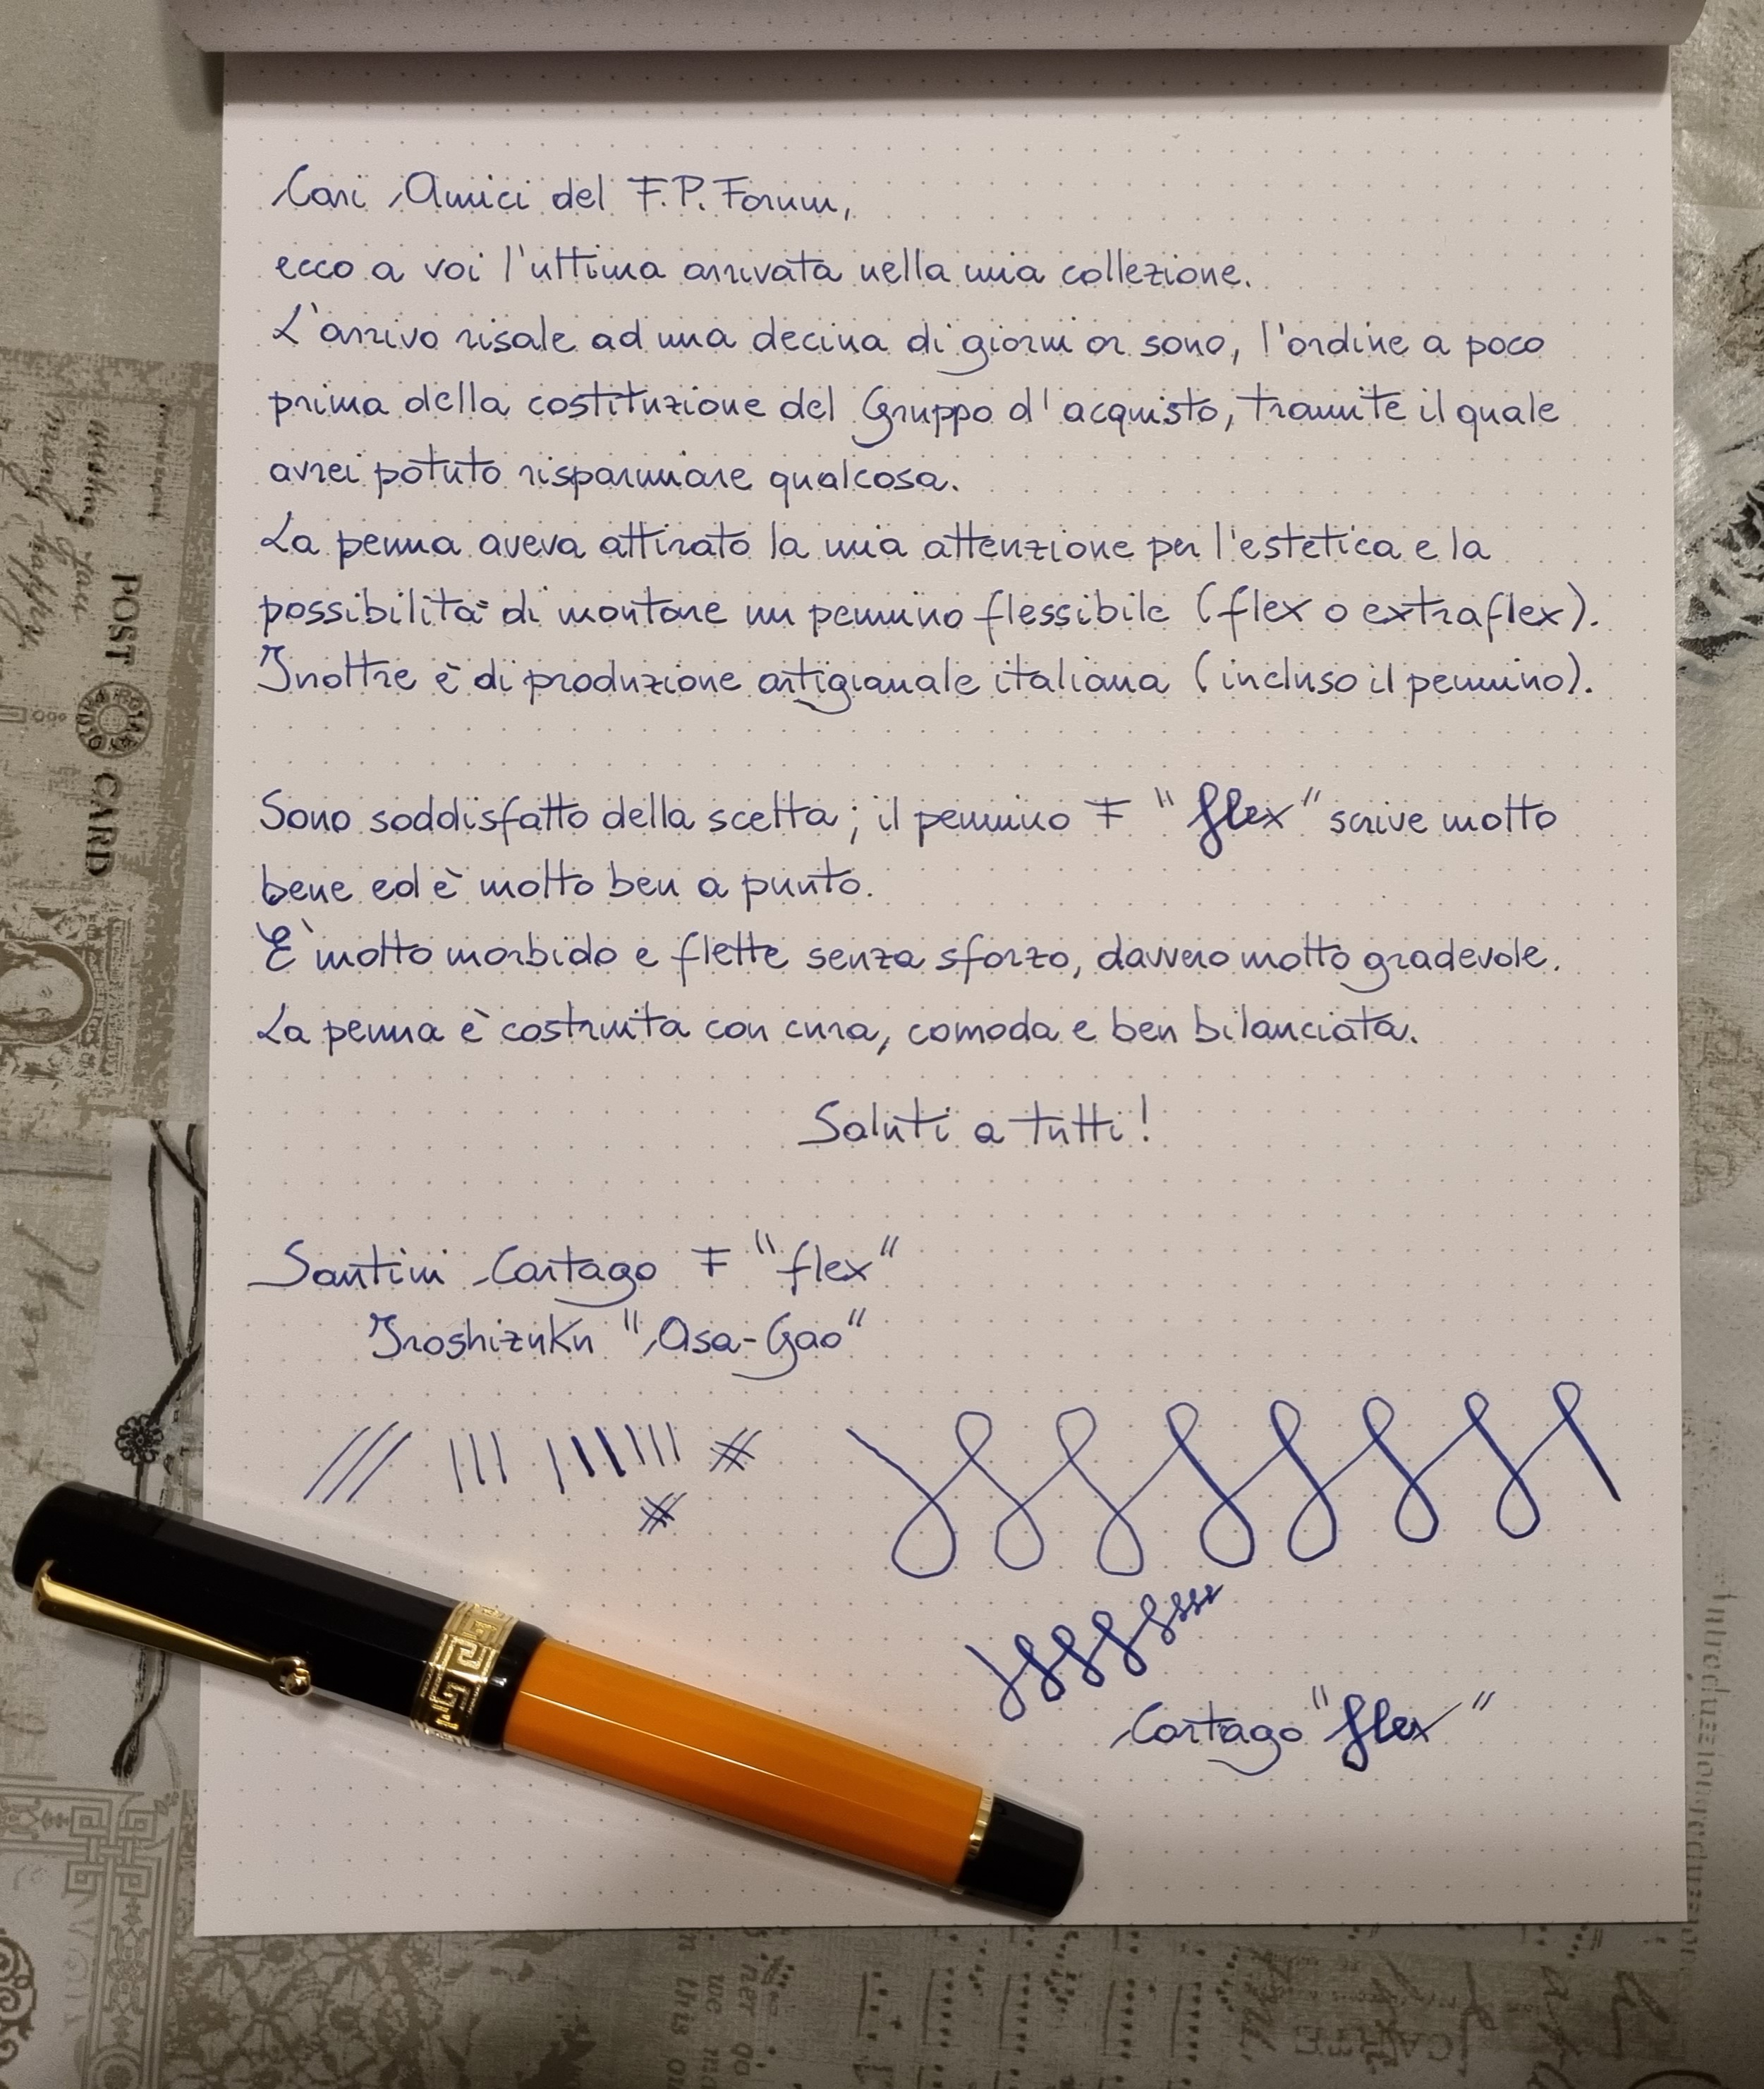 Cari Amici del F.P. Forum,
ecco a voi l'ultima arrivata nella mia collezione.
L'arrivo risale ad una decina di giorni or sono, l'ordine a poco
prima della costituzione del Gruppo d'acquisto, tramite il quale
avrei potuto risparmiare qualcosa.
La penna aveva attirato la mia attenzione per l'estetica e la
possibilità di montare un pennino flessibile (flex o extraflex).
Inoltre è di produzione artigianale italiana (incluso il pennino).
Sono soddisfatto della scelta; il pennino F "flex" scrive molto
bene ed è molto ben a punto.
E' molto morbido e flette senza sforzo, davvero molto gradevole.
La penna è costruita con cura, comoda e ben bilanciata.
Saluti a tutti!
Santini Cartago F "flex"
Iroshizuku "Asa-Gao"
Cartago "flex"
POST CARD